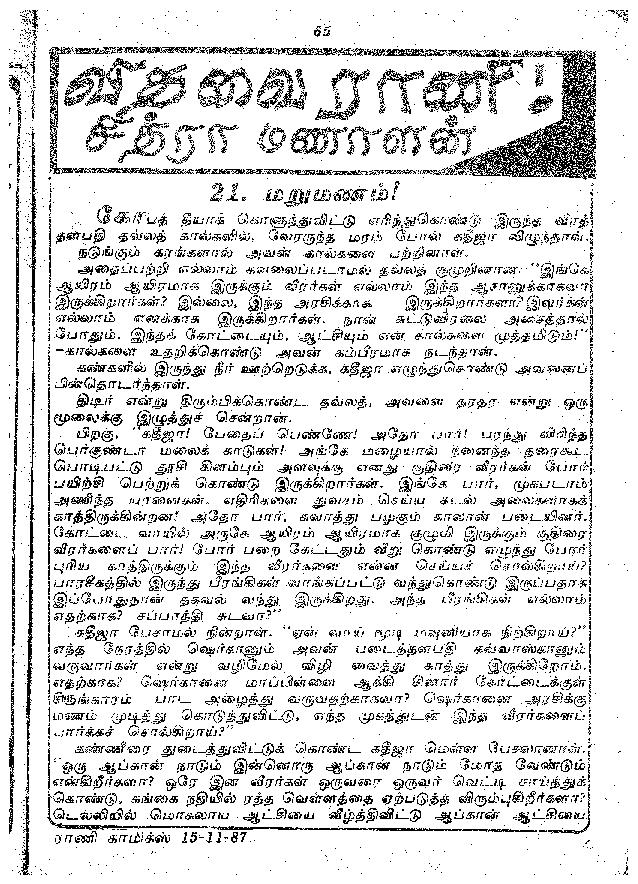 65
விதவை ராணி!
சித்ரா மணாளன்
21. மறுமணம்!
கோபத் தீயாக் கொளுந்துவிட்டு எரிந்துகொண்டு இருந்த வீரத்
தளபதி தவ்லத் கால்களில், வேரருந்த மரம் போல் கதீஜா விழுந்தாள்.
நடுங்கும் கரங்களால் அவன் கால்களை பற்றினாள்.
அதைப்பற்றி எல்லாம் கவலைப்படாமல் தவ்லத் குமுறினான்: "இங்கே
ஆயிரம் ஆயிரமாக இருக்கும் வீரர்கள் எல்லாம் இந்த ஆசானுக்காகவா
இருக்கிறார்கள்? இல்லை, இந்த அரசிக்காக இருக்கிறார்களா? இவர்கள்
எல்லாம் எனக்காக இருக்கிறார்கள். நான் சுட்டுவிரலை அசைத்தால்
போதும். இந்தக் கோட்டையும், ஆட்சியும் என் கால்களை முத்தமிடும்!"
-கால்களை உதறிக்கொண்டு அவன் கம்பீரமாக நடந்தான்.
கண்களில் இருந்து நீர் ஊற்றெடுக்க, கதீஜா எழுந்துகொண்டு அவனைப்
பின்தொடர்ந்தாள்.
திடீர் என்று திரும்பிக்கொண்ட தவ்லத், அவளை தரதர என்று ஒரு
மூலைக்கு இழுத்துச் சென்றான்.
பிறகு, "கதீஜா! பேதைப் பெண்ணே! அதோ பார்! பரந்து விரிந்த
பெர்குண்டா மலைக் காடுகள்! அங்கே மழையால் நனைந்த தரைகூட
பொடிபட்டு தூசி கிளம்பும் அளவுக்கு எனது குதிரை வீரர்கள் போர்
பயிற்சி பெற்றுக் கொண்டு இருக்கிறார்கள். இங்கே பார், முகபடாம்
அணிந்த யானைகள். எதிரிகளை துவசம் செய்ய கடல் அலைகளாகக்
காத்திருக்கின்றன! அதோ பார், சுலாத்து பழகும் காலாள் படையினர்.
கோட்டை வாயில் அருகே ஆயிரம் ஆயிரமாக குழுமி இருக்கும் குதிரை
வீரர்களைப் பார்! போர் பறை கேட்டதும் வீறு கொண்டு எழுந்து போர்
புரிய காத்திருக்கும் இந்த வீரர்களை என்ன செய்யச் சொல்கிறாய்?
பாரசீகத்தில் இருந்து பீரங்கிகள் வாங்கப்பட்டு வந்துகொண்டு இருப்பதாக
இப்போதுதான் தகவல் வந்து இருக்கிறது. அந்த பீரங்கிகள் எல்லாம்
எதற்காக? சப்பாத்தி சுடவா?"
கதீஜா பேசாமல் நின்றாள். "ஏன் வாய் மூடி மவுனியாக நிற்கிறாய்?"
எந்த நேரத்தில் ஷெர்கானும் அவன் படைத்தளபதி கவ்வாஸ்கானும்
வருவார்கள் என்று வழிமேல் விழி வைத்து காத்து இருக்கிறோம்.
எதற்காக? ஷெர்கானை மாப்பிள்ளை ஆக்கி சினார் கோட்டைக்குள்
சிருங்காரம் பாட அழைத்து வருவதற்காகவா? ஷெர்கானை அரசிக்கு
மணம் முடித்து கொடுத்துவிட்டு, எந்த முகத்துடன் இந்த வீரர்களைப்
பார்க்கச் சொல்கிறாய்?"
கண்ணீரை துடைத்துவிட்டுக் கொண்ட கதீஜா மெள்ள பேசலானாள்.
"ஒரு ஆப்கான் நாடும் இன்னொரு ஆப்கான் நாடும் மோத வேண்டும்
என்கிறீர்களா? ஒரே இன வீரர்கள் ஒருவரை ஒருவர் வெட்டி சாய்த்துக்
கொண்டு, கங்கை நதியில் ரத்த வெள்ளத்தை ஏற்படுத்த விரும்புகிறீர்களா?
டெல்லியில் மொகலாய ஆட்சியை வீழ்த்திவிட்டு ஆப்கான் ஆட்சியை
ராணி காமிக்ஸ் 15-11-87